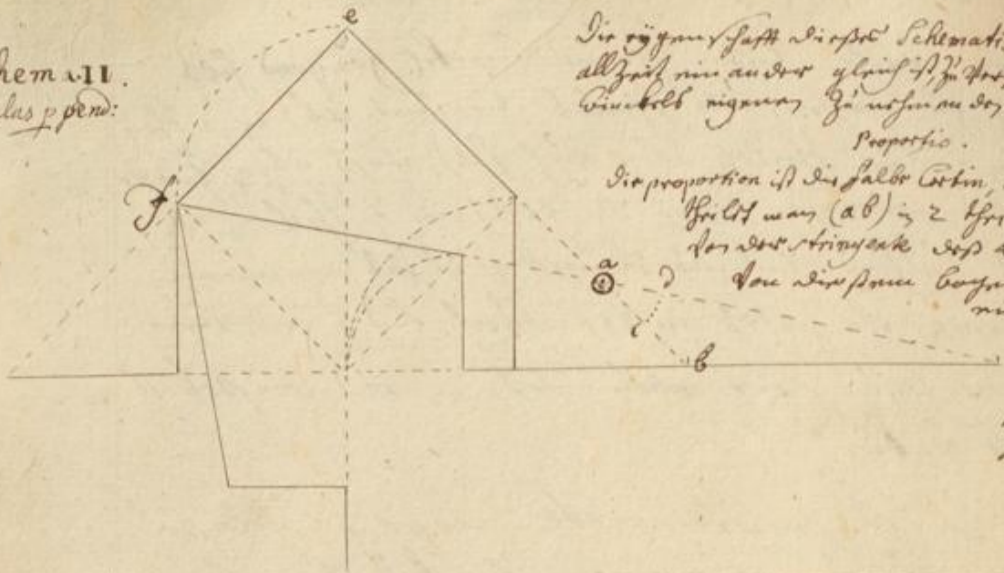 hema II.
e
Die eygenschafft dießes Schemati
allzeit ein ander gleich ist, zu
winckels eigenen zu nehmen den
Proportio.
die proportion ist die halbe Cortin,
theilet man (ab) in 2 thei
Von der stringente deß
Von dießem bogen
f
a
d
c
b